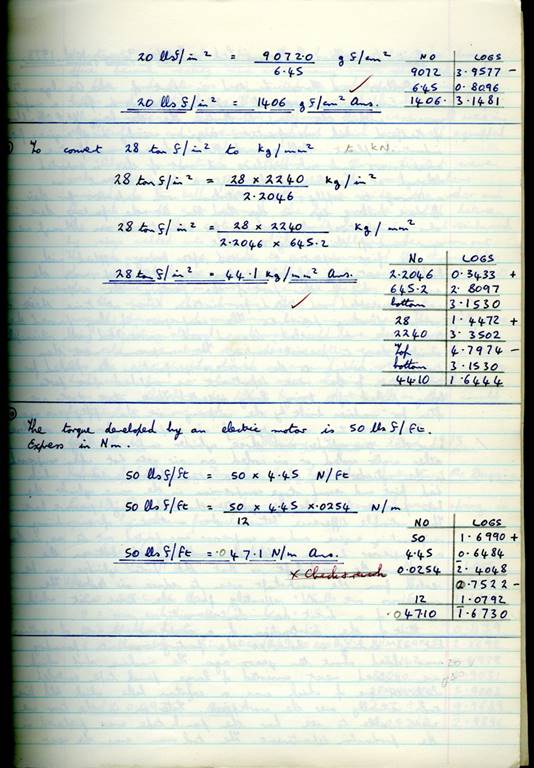 20 lbsf/in² = 9072.0 gf/cm²
6.45
20 lbsf/in² = 1406 gf/cm² Ans.
NO LOGS
9072 3.9577 -
6.45 0.8096
1406. 3.1481
To convert 28 tonf/in² to kg/mm² to KN.
28 tonf/in² = 28 x 2240 kg/in²
2.2046
28 tonf/in² = 28 x 2240 kg/mm²
2.2046 x 645.2
28 tonf/in² = 44.1 kg/mm² Ans.
No LOGS
2.2046 0.3433 +
645.2 2.8097
bottom 3.1530
28 1.4472 +
2240 3.3502
Top 4.7974 -
bottom 3.1530
4410 1.6444
The torque developed by an electric motor is 50 lbsf/ft.
Express in Nm.
50 lbsf/ft = 50 x 4.45 N/ft
50 lbsf/ft = 50 x 4.45 x .0254 N/m
12
50 lbsf/ft = .047.1 N/m Ans.
x Check
NO LOGS
50 1.6990 +
4.45 0.6484
0.0254 2̄.4048
0.7522 -
12 1.0792
.04710 1̄.6730